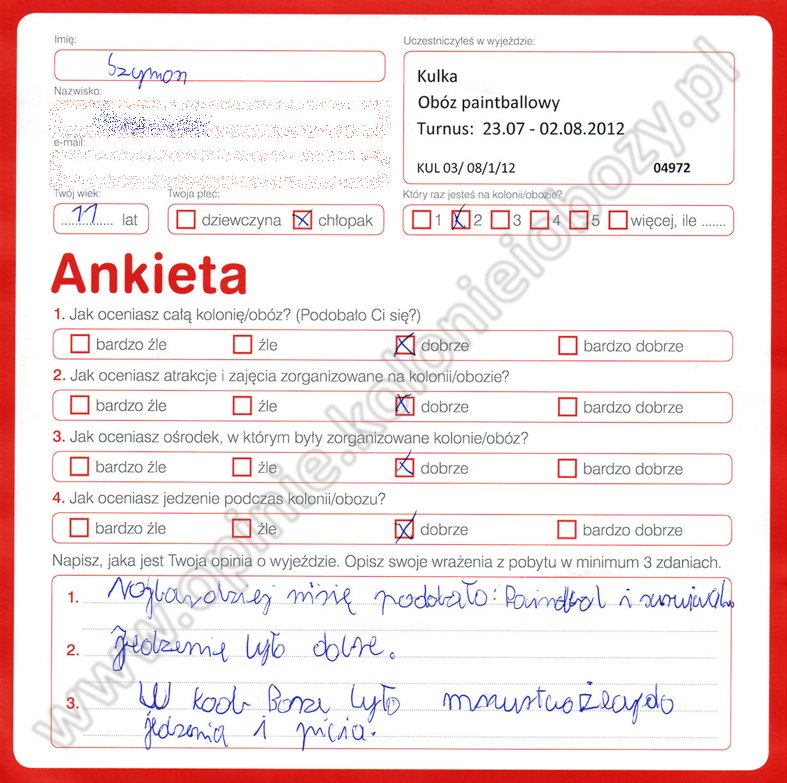 Imię:
Szymon
Nazwisko:
e-mail:
Twój wiek:
11 lat
Twoja płeć:
dziewczyna chłopak
Uczestniczyłeś w wyjeździe:
Kulka
Obóz paintballowy
Turnus: 23.07 - 02.08.2012
KUL 03/ 08/1/12 04972
Który raz jesteś na kolonii/obozie?
1 2 3 4 5 więcej, ile .......
Ankieta
1. Jak oceniasz całą kolonię/obóz? (Podobało Ci się?)
bardzo źle źle dobrze bardzo dobrze
2. Jak oceniasz atrakcje i zajęcia zorganizowane na kolonii/obozie?
bardzo źle źle dobrze bardzo dobrze
3. Jak oceniasz ośrodek, w którym były zorganizowane kolonie/obóz?
bardzo źle źle dobrze bardzo dobrze
4. Jak oceniasz jedzenie podczas kolonii/obozu?
bardzo źle źle dobrze bardzo dobrze
Napisz, jaka jest Twoja opinia o wyjeździe. Opisz swoje wrażenia z pobytu w minimum 3 zdaniach.
1. Najbardziej podobało: Paindbol i
2. Jedzenie było dobre.
3. W było
jedzenia i picia.
www.opinie.kolonieiobozy.pl